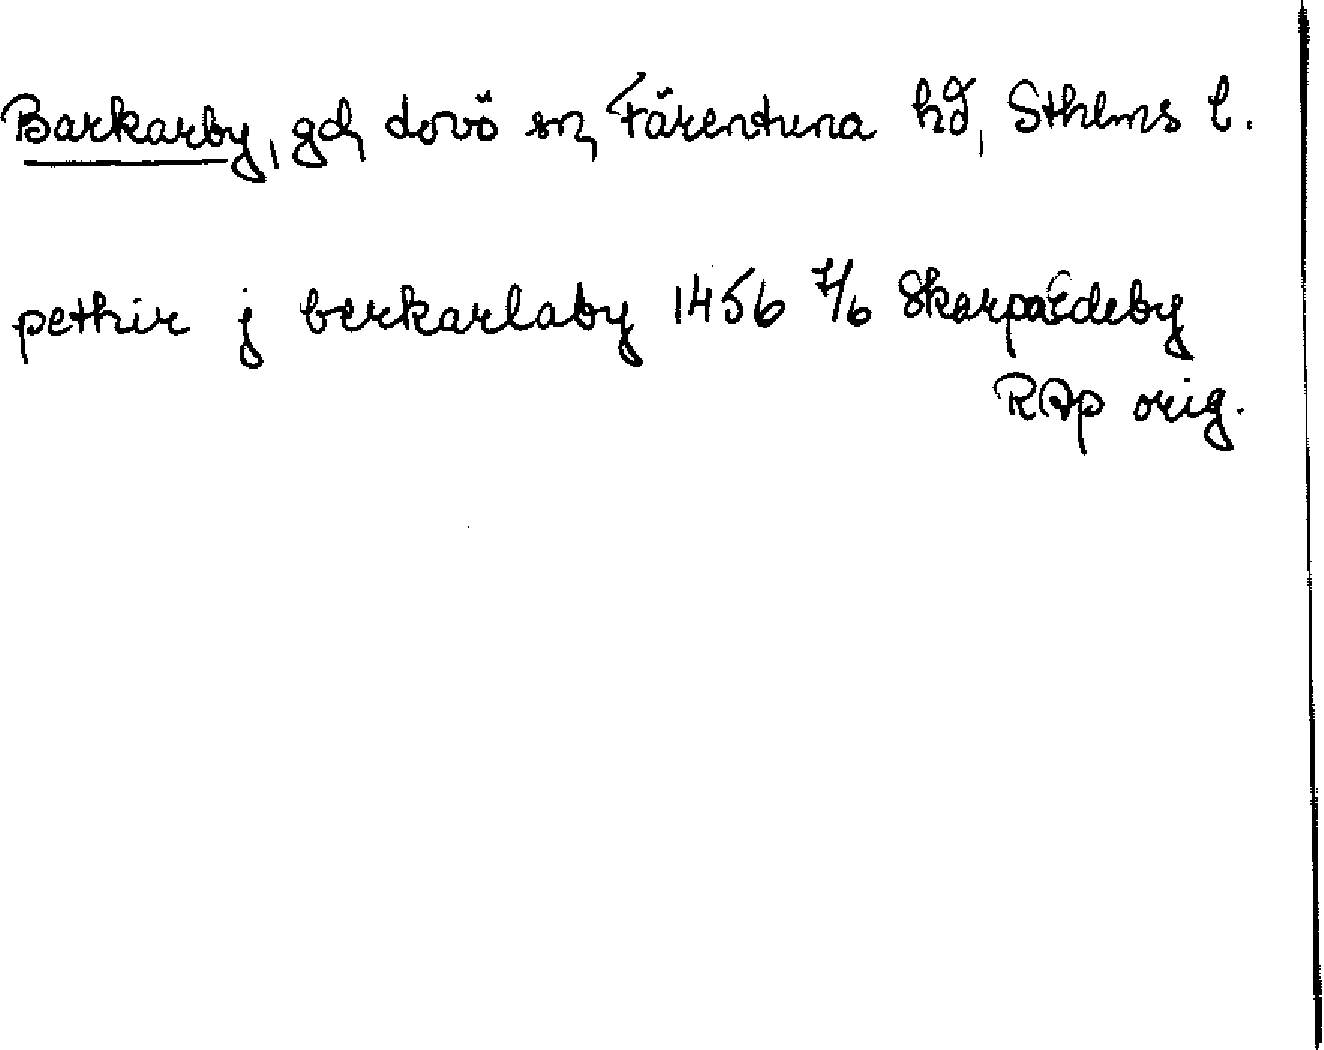 Barkarby, gd, Lovö sn, Färentuna hd, Sthlms l.
pethir j berkarlaby 1456 7/6 Skarpaedeby
RAp orig.